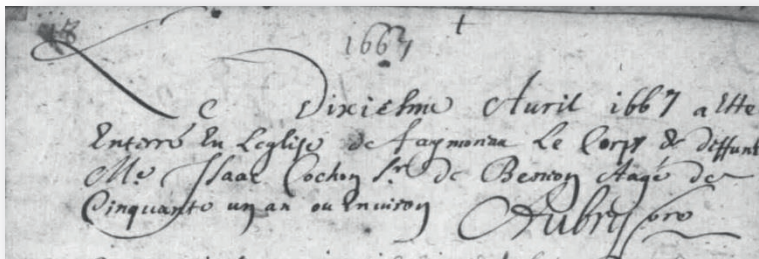 1667
Le Dixiesme Avril 1667 a Este
Enterré En Leglise de faymoreau Le Corps de deffunt
Me Isaac Cochon Sr de Bernon Aagé de
Cinquante un an ou Environ